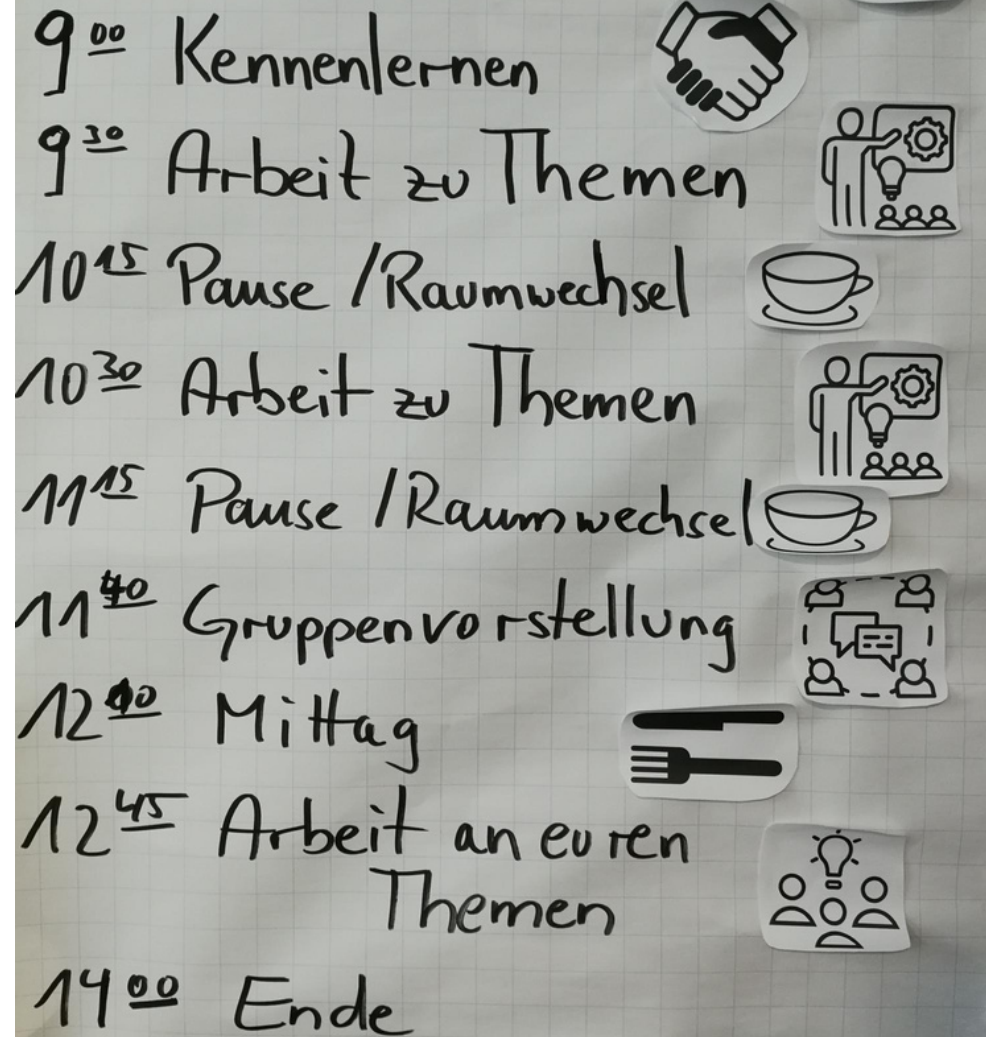 9 00 Kennenlernen
9 30 Arbeit zu Themen
10 15 Pause / Raumwechsel
10 30 Arbeit zu Themen
11 15 Pause / Raumwechsel
11 40 Gruppenvorstellung
12 10 Mittag
12 45 Arbeit an euren
Themen
14 00 Ende